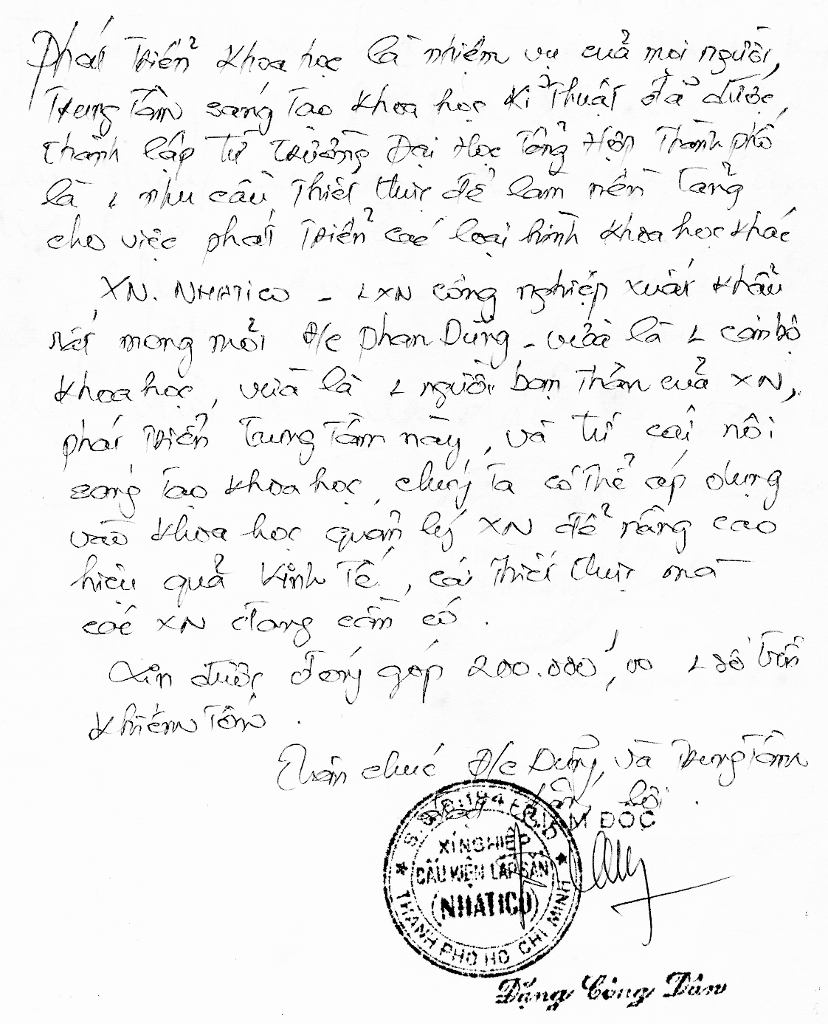 Phát triển khoa học là nhiệm vụ của mọi người,
Trung Tâm sáng Tạo khoa học Kĩ Thuật đã được,
thành lập từ trường Đại Học Tổng Hợp Thành phố
là 1 nhu cầu Thiết thực để làm nền Tảng
cho việc phát triển các loại hình khoa học khác
XN. NHATICO - 1 XN công nghiệp xuất khẩu
rất mong mỏi đ/c phan Dũng - vừa là 1 cán bộ
khoa học, vừa là 1 người bạn Thân của XN,
phát triển Trung Tâm này, và từ cái nôi
sáng Tạo khoa học, chúng Ta có thể áp dụng
vào khoa học quản lý XN để nâng cao
hiệu quả Kinh Tế, cái Thiết thực mà
các XN đang cần có.
Xin được đóng góp 200.000,00 1 số tiền
khiêm Tốn.
Chân chúc đ/c Dũng, và Trung Tâm
GIÁM ĐỐC
XÍ NGHIỆP
CẤU KIỆN LẮP SẴN
(NHATICO)
THÀNH PHỐ HỒ CHÍ MINH
Đặng Công Dân